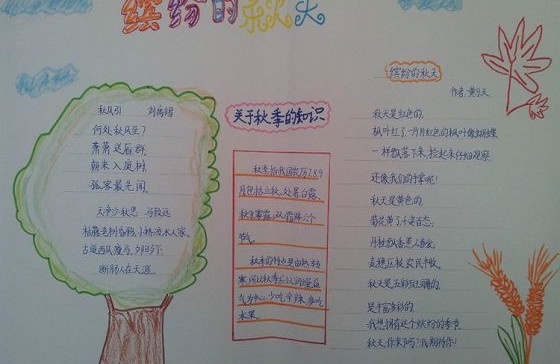 缤纷的秋天
秋风引 刘禹锡
何处秋风至?
萧萧送雁群
朝来入庭树
孤客最先闻
天净沙秋思 马致远
枯藤老树昏鸦,小桥流水人家
古道西风瘦马,夕阳西下
断肠人在天涯
关于秋季的知识
秋季指我国农历7.8.9
月包括立秋,处暑,白露,
秋分,寒露,霜降六个
节气
秋季的特点是由热转
寒
水果
缤纷的秋天
作者:
秋天是红色的,
枫叶红了一片片红色的枫叶像蝴蝶
一样飘落下来,捡起来仔细观察
还像我们的手掌呢!
秋天是黄色的
菊花黄了千姿百态,
丹桂飘香惹人喜爱,
麦穗压枝,农民丰收。
秋天是五彩斑斓的
是丰富多彩的,
我想拥有这个缤纷的季节
秋天,你来了吗?我期待你!